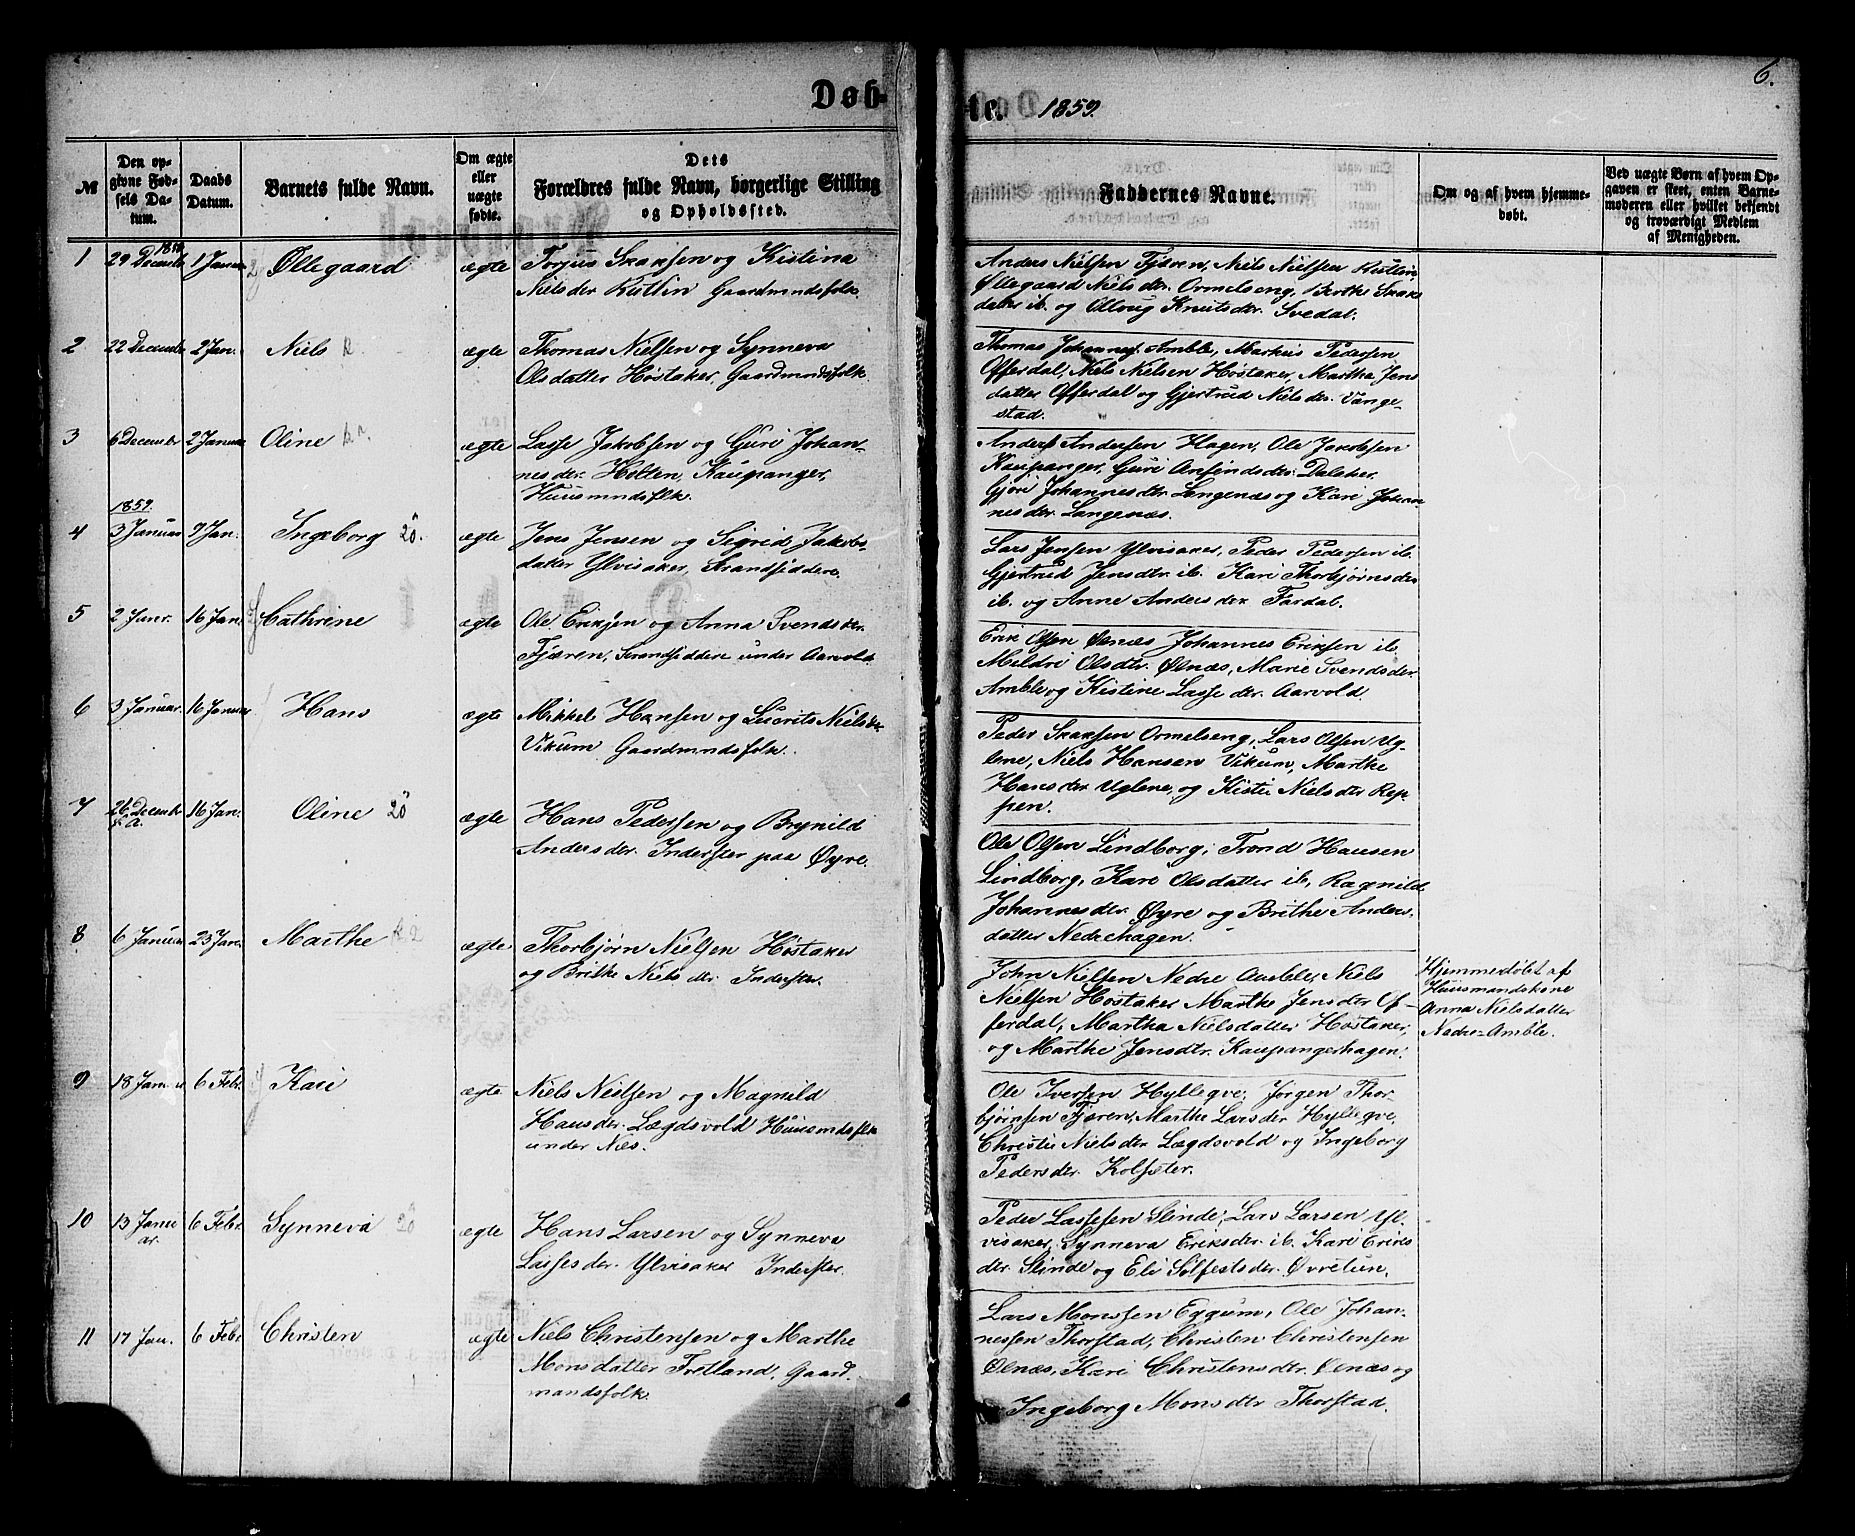 Døb-
te. 1859.
6.
№
Den op-
givne Fød-
sels Da-
tum.
Daabs
Datum.
Barnets fulde Navn.
Om ægte
eller
uægte
fødte.
Dets
Forældres fulde Navn, borgerlige Stilling
og Opholdssted.
Faddernes Navne.
Om og af hvem hjemme-
døbt.
Ved uægte Børn af hvem Op-
gaven er skeet, enten Barne-
moderen eller hvilket bekjendt
og troværdigt Medlem
af Menigheden.
1 29 Decemb. 1858 1 Januar Øllegaard ægte
Torjus Skaksen og Kistina
Nielsder Rutlin Gaardmndsfolk.
Anders Nielsen Fjæren, Niels Nielsen Rutlin
Øllegaard Nielsder. Ormelseng, Berthe Skaks
datter ib. og Olloug Knutsder. Svedal.
2 22 December 2 Jan. Niels ægte
Thomas Nielsen og Synneva
Olsdatter Høstaker, Gaardmndsfolk.
Thomas Johannes. Amble, Markus Pedersen
Offerdal, Niels Nielsen Høstaker, Martha Jens
datter Offerdal og Gjertrud Nielsder. Vange-
stad.
3 6 Decembr 2 Januar Oline ægte
Lasse Jakobsen og Guri Johan-
nesder. Holten, Kaupanger,
Huusmndsflk.
Anders Andersen Hagen, Ole Jakobsen
Kaupanger, Guri Ansfindsder. Dalaker,
Gjøri Johannesdtr Langenæs og Kari Johan-
nesder. Langenæs.
1859.
4 3 Januar 9 Jan. Ingeborg 20. ægte
Jens Jensen og Sigrid Jakobs-
datter Ylvisaker, Strandsiddere.
Lars Jensen Ylvisaker, Peder Pedersen ib.
Gjertrud Jensdtr. ib. Kari Thorbjørnsder
ib. og Anne Andersder Fardal.
5 2 Janr. 16 Jan. Cathrine ægte
Ole Eriksen og Anna Svendsder.
Fjæren, Strandsiddere under Aarvold.
Erik Olsen Ølnæs Johannes Eriksen ib.
Mildri Olsdtr. Ølnæs, Marie Svendsder.
Amble og Kistine Lassesder. Aarvold
6 3 Januar. 16 Januar Hans ægte
Mikkel Hansen og Liserits Nielsder.
Vikum Gaardmndsfolk.
Peder Skaksen Ormelseng, Lars Olsen Ug-
lene, Niels Hansen Vikum, Marthe
Hansder Uglene, og Kisti Nielsder Rep-
pen.
7 26 Decembr f. A. 16 Jan. Oline 20 ægte
Hans Pedersen og Brynild
Andersder. Inderster paa Øyre.
Ole Olsen Lindborg, Trond Hansen
Lindborg, Kari Olsdatter ib, Ragnild
Johannesder. Øyre og Brithe Anders-
datter Nedrehagen.
8 6 Januar 23 Jan. Marthe ægte
Thorbjørn Nielsen Høstaker
og Brithe Nielsder. Inderster.
John Nielsen Nedre Amble, Niels
Nielsen Høstaker Marthe Jensder Of-
ferdal, Martha Nielsdatter Høstaker,
og Marthe Jensdtr. Kaupangerhagen.
Hjemmedøbt af
Huusmandskone
Anna Nielsdatter
Nedre-Amble.
9 18 Januar 6 Febr. Kari ægte
Niels Nielsen og Magnild
Hansder. Lægdsvold Huusmdsflk
under Næs.
Ole Iversen Hylleqve, Jørgen Thor-
bjørnsen Fjæren, Marthe Larsder Hylleqve,
Christi Nielsder Lægdsvold og Ingeborg
Pedersder. Kolsæter.
10 13 Janu
ar. 6 Febr. Synneva 20 ægte
Hans Larsen og Synneva
Lassesder. Ylvisaker Inderster.
Peder Lassesen Slinde, Lars Larsen Yl-
visaker, Synneva Eriksder. ib. Kari Eriks
der. Slinde og Eli Sølfestsder. Øvretun.
11 17 Jan. 6 Febr Christen ægte
Niels Christensen og Marthe
Monsdatter Fretland, Gaard
mandsfolk.
Lars Monssen Eggum, Ole Johan-
nessen Thorstad, Christen Christensen
Ølnæs, Kari Christensdtr. Ølnæs og
Ingeborg Monsdtr Thorstad.